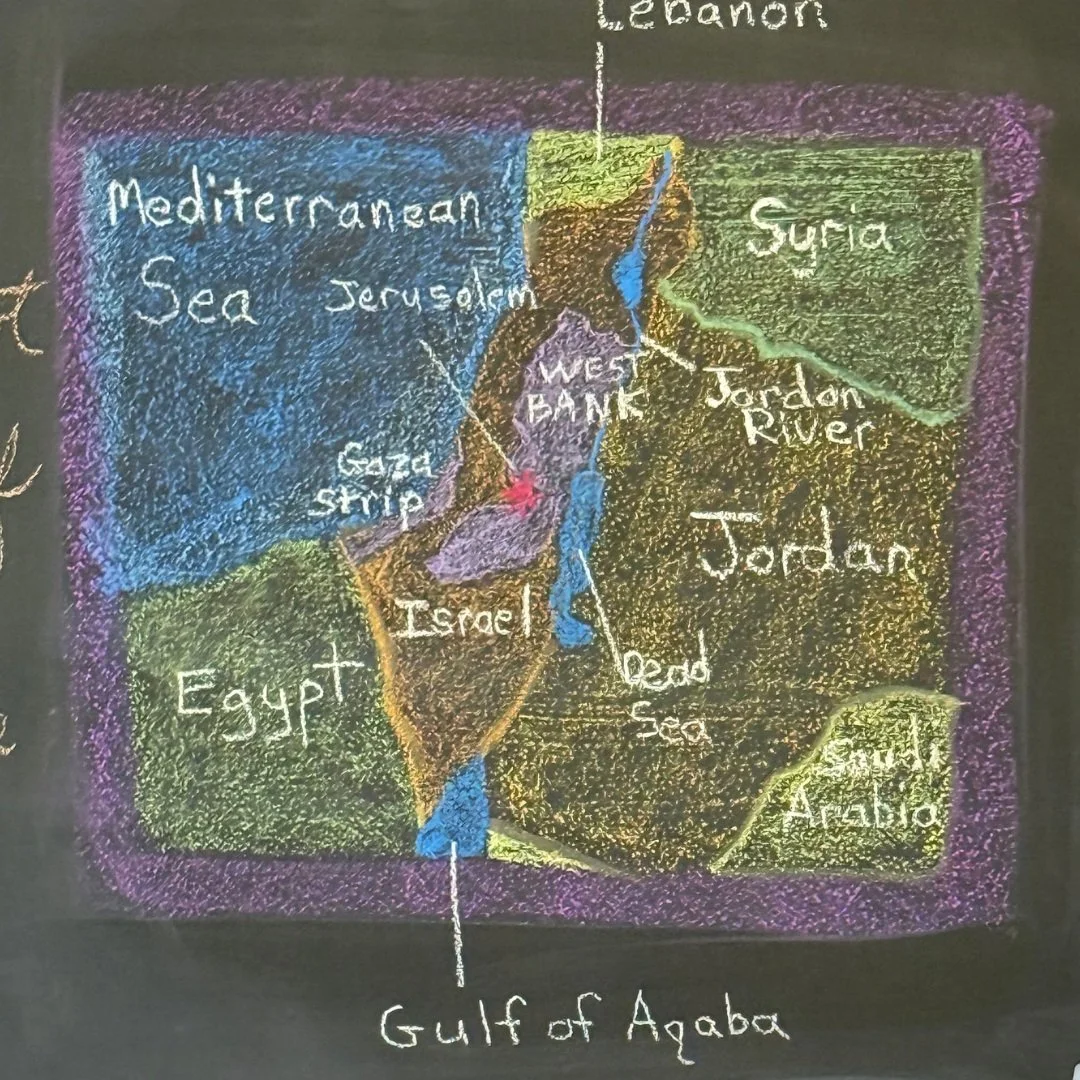 Lebanon
Mediterranean
Sea
Syria
Jerusalem
WEST
BANK
Jordan
River
Gaza
strip
Jordan
Israel
Dead
Sea
Egypt
Saudi
Arabia
Gulf of Aqaba